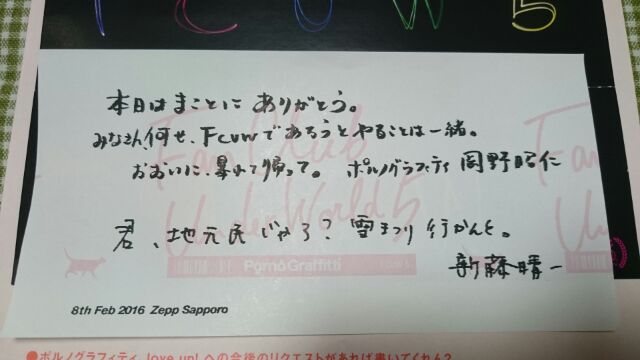 FCUW5
本日はまことにありがとう。
みなさん、何せ、FCUWであろうとやることは一緒。
おおいに、暴れて帰って。 ポルノグラフィティ 岡野昭仁
Fan Club
UnderWorld5
君、地元民じゃろ？雪まつり行かんと。
PornoGraffitti
新藤晴一
8th Feb 2016 Zepp Sapporo
●ポルノグラフィティ love up!への今後のリクエストがあれば書いてくれん？